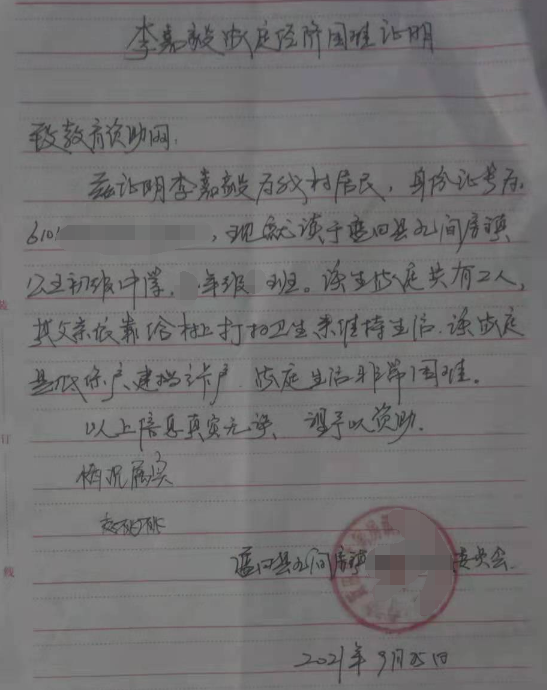 李嘉毅家庭经济困难证明
致教育资助网:
兹证明李嘉毅为我村居民,身份证号为
6101,现就读于蓝田县九间房镇
公立初级中学,年级班。该生家庭共有二人,
其父亲依靠给村上打扫卫生来维持生活.该家庭
是低保户建档立卡户.家庭生活非常困难。
以上信息真实无误、望予以资助.
情况属实
蓝田县九间房镇委员会.
2021年9月25日